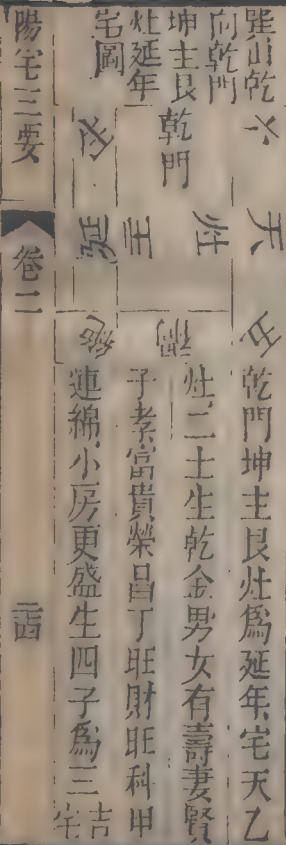 巽山乾
向乾門
坤主艮
灶延年
宅圖
乾門
六
天
五
灶
主
禍
延
絕
乾門坤主艮灶爲延年宅天乙
灶二土生乾金男女有壽妻賢
子孝富貴榮昌丁旺財旺科甲
連綿小房更盛生四子爲三吉
宅
陽宅三要
卷二